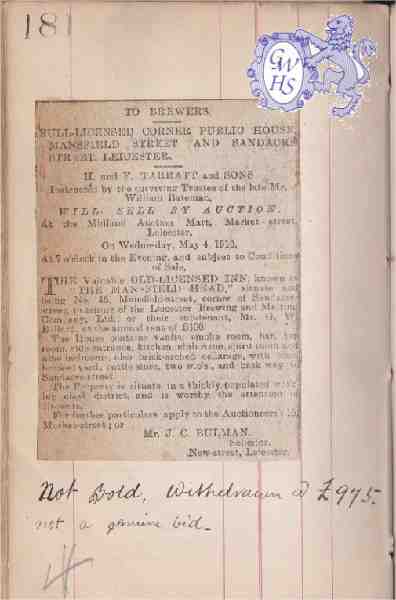 181
GWHS
TO BREWERS.
FULL-LICENSED CORNER PUBLIC HOUSE,
MANSFIELD STREET AND SANDACRE
STREET, LEICESTER.
H. and F. TARRATT and SONS
Instructed by the surviving Trustee of the late Mr.
William Bateman,
WILL SELL BY AUCTION,
At the Midland Auction Mart, Market-street,
Leicester,
On Wednesday, May 4,
At 7 o'clock in the Evening, and subject to Conditions
of Sale,
THE Valuable OLD-LICENSED INN, known as
"THE MANSFIELD HEAD," situate and
being No. Mansfield-street, corner of Sandacre-
street, in the of the Leicester Brewing and Malting
Company, Ltd., or their subtenant, Mr. G. W.
at the annual rent of £100.
The House contains vaults, smoke room, bar, tap
room, side entrance, kitchen, club room, and
bedrooms, also brick-arched cellarage, with
yard, two w.c.'s, and back way to
Sandacre-street.
The Property is situate in a thickly populated work-
ing class district, and is worthy the attention of
Brewers.
For further particulars apply to the Auctioneers, 16,
Market-street; or
Mr. J. C. BULMAN,
Solicitor,
New-street, Leicester.
Not Sold, Withdrawn @ £975.
not a genuine bid.